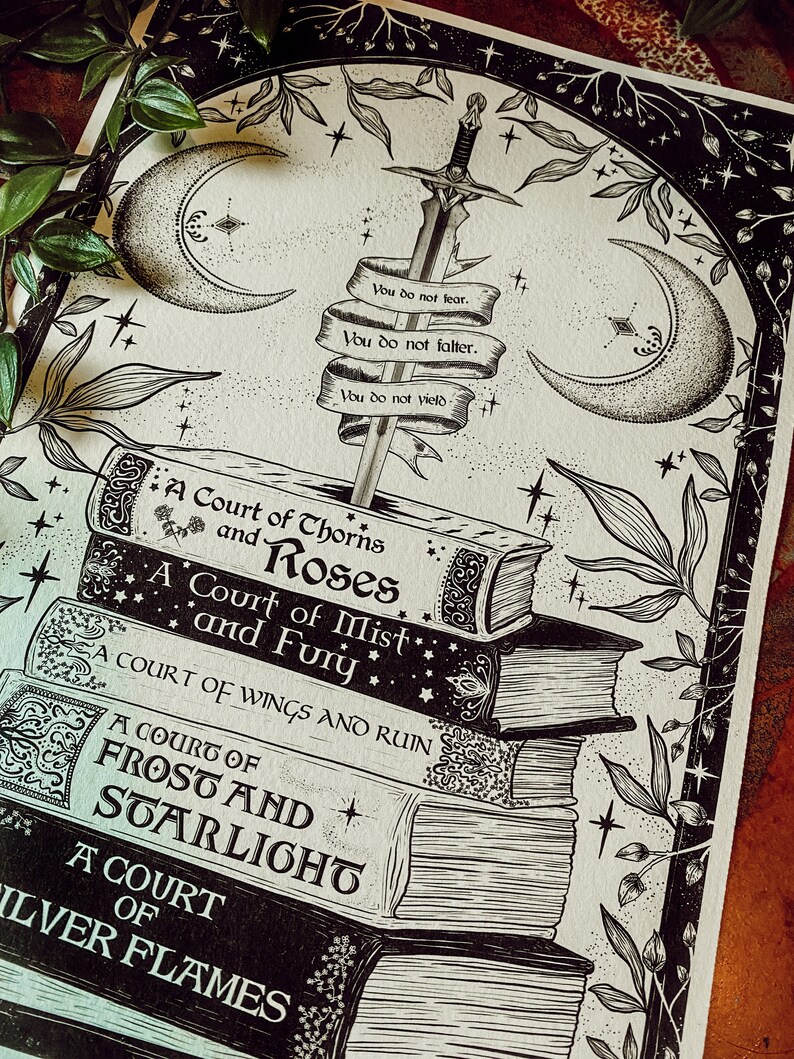 You do not fear.
You do not falter.
You do not yield
A Court of Thorns
and Roses
A Court of Mist
and Fury
A COURT OF WINGS AND RUIN
A COURT OF
FROST AND
STARLIGHT
A COURT
OF
SILVER FLAMES